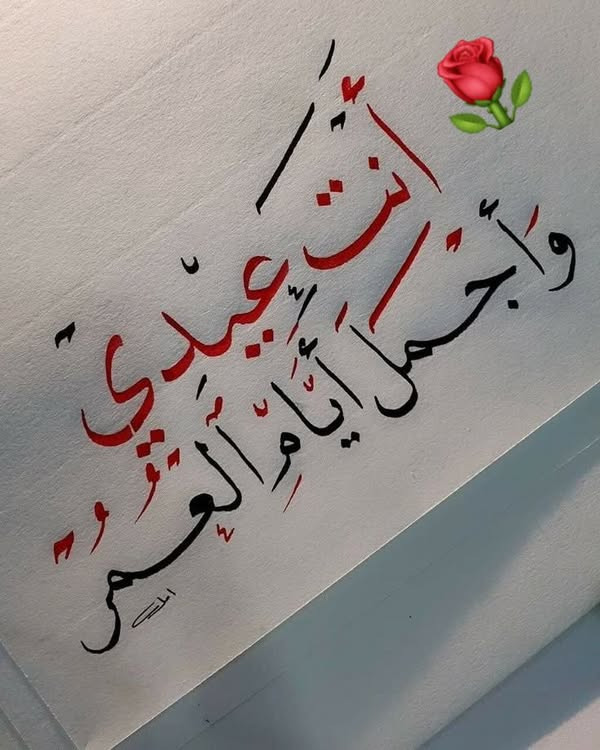 أنتَ عِيْدي
وَأجمل أيَّامِ العمر